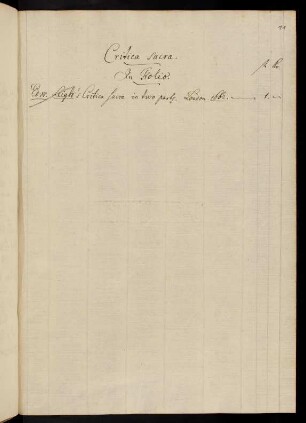 Critica sacra.
In Folio.
Edw. Leigh's Critica sacra in two parts. London 1.